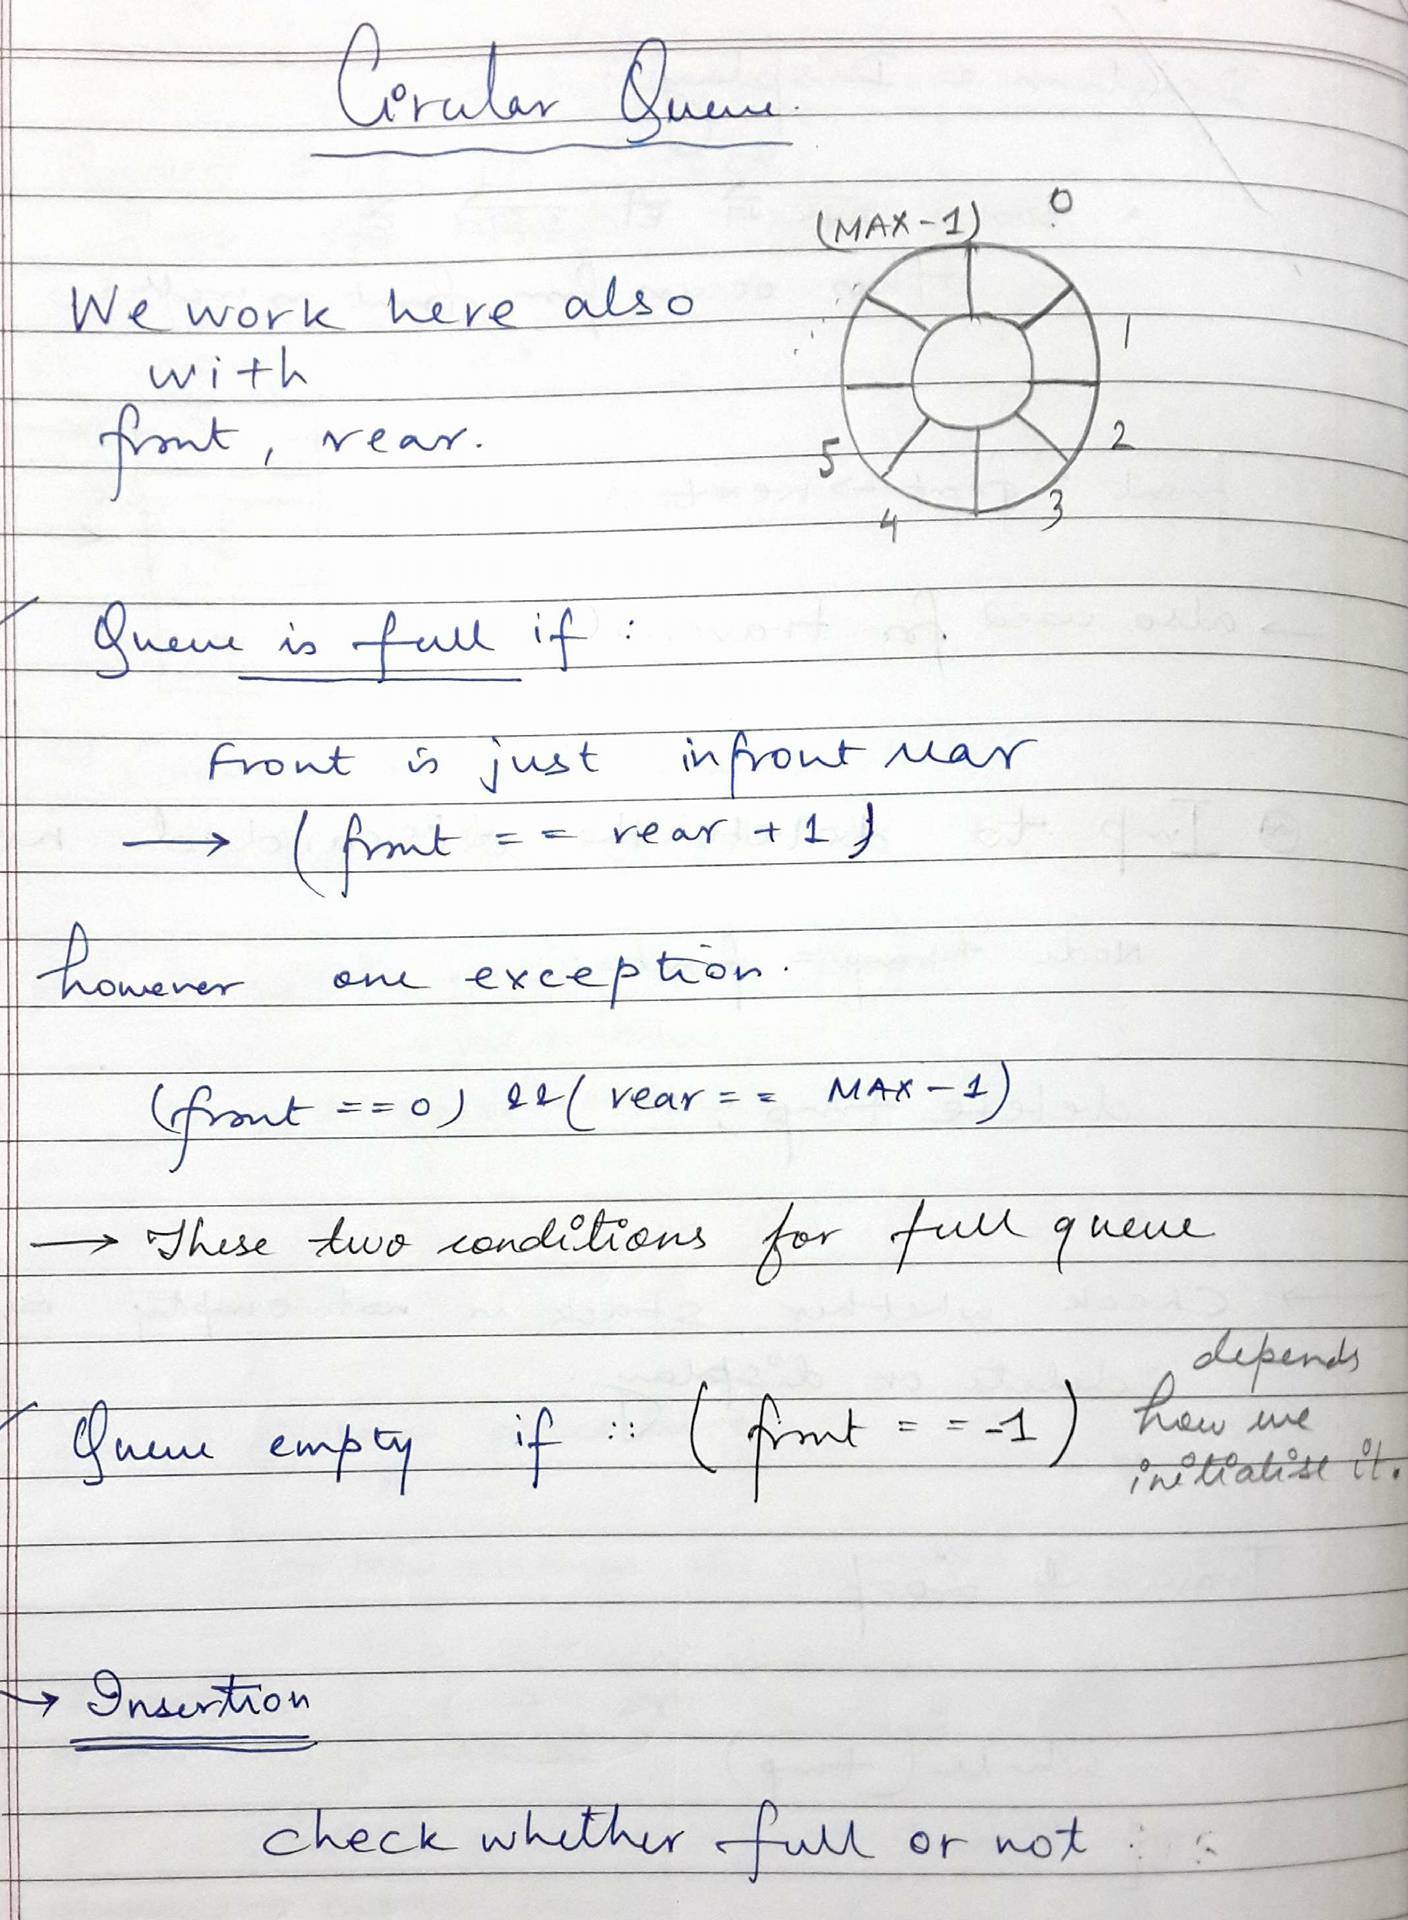 Circular Queue.
(MAX-1) 0
We work here also
1
with
front, rear.
2
5
3
4
Queue is full if :
Front is just infront rear
→ (front == rear + 1)
however one exception.
(front == 0) && (rear == MAX-1)
→ These two conditions for full queue
depends
Queue empty if :: (front == -1) how we
initialise it.
→ Insertion
check whether full or not :